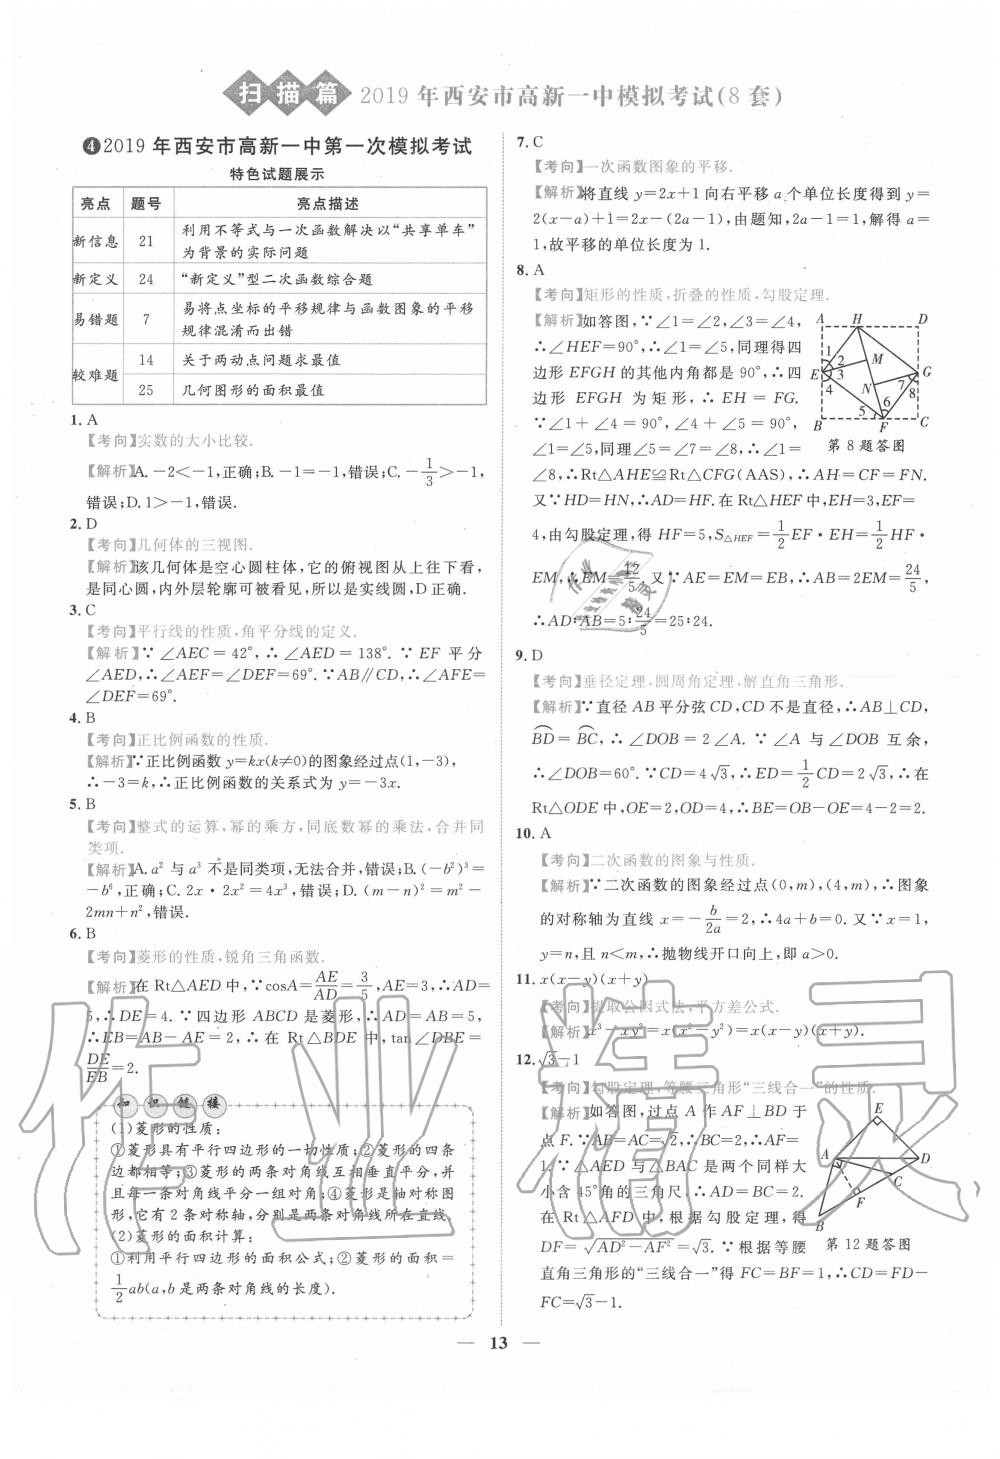 扫描篇 2019年西安市高新一中模拟考试(8套)
❹2019年西安市高新一中第一次模拟考试
特色试题展示
亮点 题号 亮点描述
新信息 21 利用不等式与一次函数解决以“共享单车”
为背景的实际问题
新定义 24 “新定义”型二次函数综合题
易错题 7 易将点坐标的平移规律与函数图象的平移
规律混淆而出错
较难题 14 关于两动点问题求最值
25 几何图形的面积最值
1. A
【考向】实数的大小比较.
【解析】A.-2<-1,正确;B.-1=-1,错误;C.-1/3>-1,
错误;D.1>-1,错误.
2. D
【考向】几何体的三视图.
【解析】该几何体是空心圆柱体,它的俯视图从上往下看,
是同心圆,内外层轮廓可被看见,所以是实线圆,D正确.
3. C
【考向】平行线的性质,角平分线的定义.
【解析】∵∠AEC=42°,∴∠AED=138°.∵EF平分
∠AED,∴∠AEF=∠DEF=69°.∵AB∥CD,∴∠AFE=
∠DEF=69°.
4. B
【考向】正比例函数的性质.
【解析】∵正比例函数y=kx(k≠0)的图象经过点(1,-3),
∴-3=k,∴正比例函数的关系式为y=-3x.
5. B
【考向】整式的运算,幂的乘方,同底数幂的乘法,合并同
类项.
【解析】A.a²与a³不是同类项,无法合并,错误;B.(-b²)³=
-b⁶,正确;C.2x·2x²=4x³,错误;D.(m-n)²=m²-
2mn+n²,错误.
6. B
【考向】菱形的性质,锐角三角函数.
【解析】在Rt△AED中,∵cosA=AE/AD=3/5,AE=3,∴AD=
5,∴DE=4.∵四边形ABCD是菱形,∴AD=AB=5,
∴EB=AB-AE=2,∴在Rt△BDE中,tan∠DBE=
DE/EB=2.
知识链接
(1)菱形的性质:
①菱形具有平行四边形的一切性质;②菱形的四条
边都相等;③菱形的两条对角线互相垂直平分,并
且每一条对角线平分一组对角;④菱形是轴对称图
形,它有2条对称轴,分别是两条对角线所在直线.
(2)菱形的面积计算:
①利用平行四边形的面积公式;②菱形的面积=
1/2ab(a,b是两条对角线的长度).
7. C
【考向】一次函数图象的平移.
【解析】将直线y=2x+1向右平移a个单位长度得到y=
2(x-a)+1=2x-(2a-1),由题知,2a-1=1,解得a=
1,故平移的单位长度为1.
8. A
【考向】矩形的性质,折叠的性质,勾股定理.
【解析】如答图,∵∠1=∠2,∠3=∠4,
∴∠HEF=90°,∴∠1=∠5,同理得四
边形EFGH的其他内角都是90°,∴四
边形EFGH为矩形,∴EH=FG.
∵∠1+∠4=90°,∠4+∠5=90°,
∠1=∠5,同理∠5=∠7=∠8,∴∠1=
∠8,∴Rt△AHE≌Rt△CFG(AAS),∴AH=CF=FN.
又∵HD=HN,∴AD=HF.在Rt△HEF中,EH=3,EF=
4,由勾股定理,得HF=5,S△HEF=1/2EF·EH=1/2HF·
EM,∴EM=12/5.又∵AE=EM=EB,∴AB=2EM=24/5,
∴AD∶AB=5∶24/5=25∶24.
A H D
1 2 M
E 3 7 G
4 N 8
5 6
B F C
第8题答图
9. D
【考向】垂径定理,圆周角定理,解直角三角形.
【解析】∵直径AB平分弦CD,CD不是直径,∴AB⊥CD,
B͡D=B͡C,∴∠DOB=2∠A.∵∠A与∠DOB互余,
∴∠DOB=60°.∵CD=4√3,∴ED=1/2CD=2√3,∴在
Rt△ODE中,OE=2,OD=4,∴BE=OB-OE=4-2=2.
10. A
【考向】二次函数的图象与性质.
【解析】∵二次函数的图象经过点(0,m),(4,m),∴图象
的对称轴为直线x=-b/2a=2,∴4a+b=0.又∵x=1,
y=n,且n<m,∴抛物线开口向上,即a>0.
11. x(x-y)(x+y)
【考向】提取公因式法,平方差公式.
【解析】x³-xy²=x(x²-y²)=x(x-y)(x+y).
12. √3-1
【考向】勾股定理,等腰三角形“三线合一”的性质.
【解析】如答图,过点A作AF⊥BD于
点F.∵AB=AC=√2,∴BC=2,∴AF=
1.∵△AED与△BAC是两个同样大
小含45°角的三角尺,∴AD=BC=2.
在Rt△AFD中,根据勾股定理,得
DF=√AD²-AF²=√3.∵根据等腰
直角三角形的“三线合一”得FC=BF=1,∴CD=FD-
FC=√3-1.
E
A D
C
F
B
第12题答图
13
作业精灵